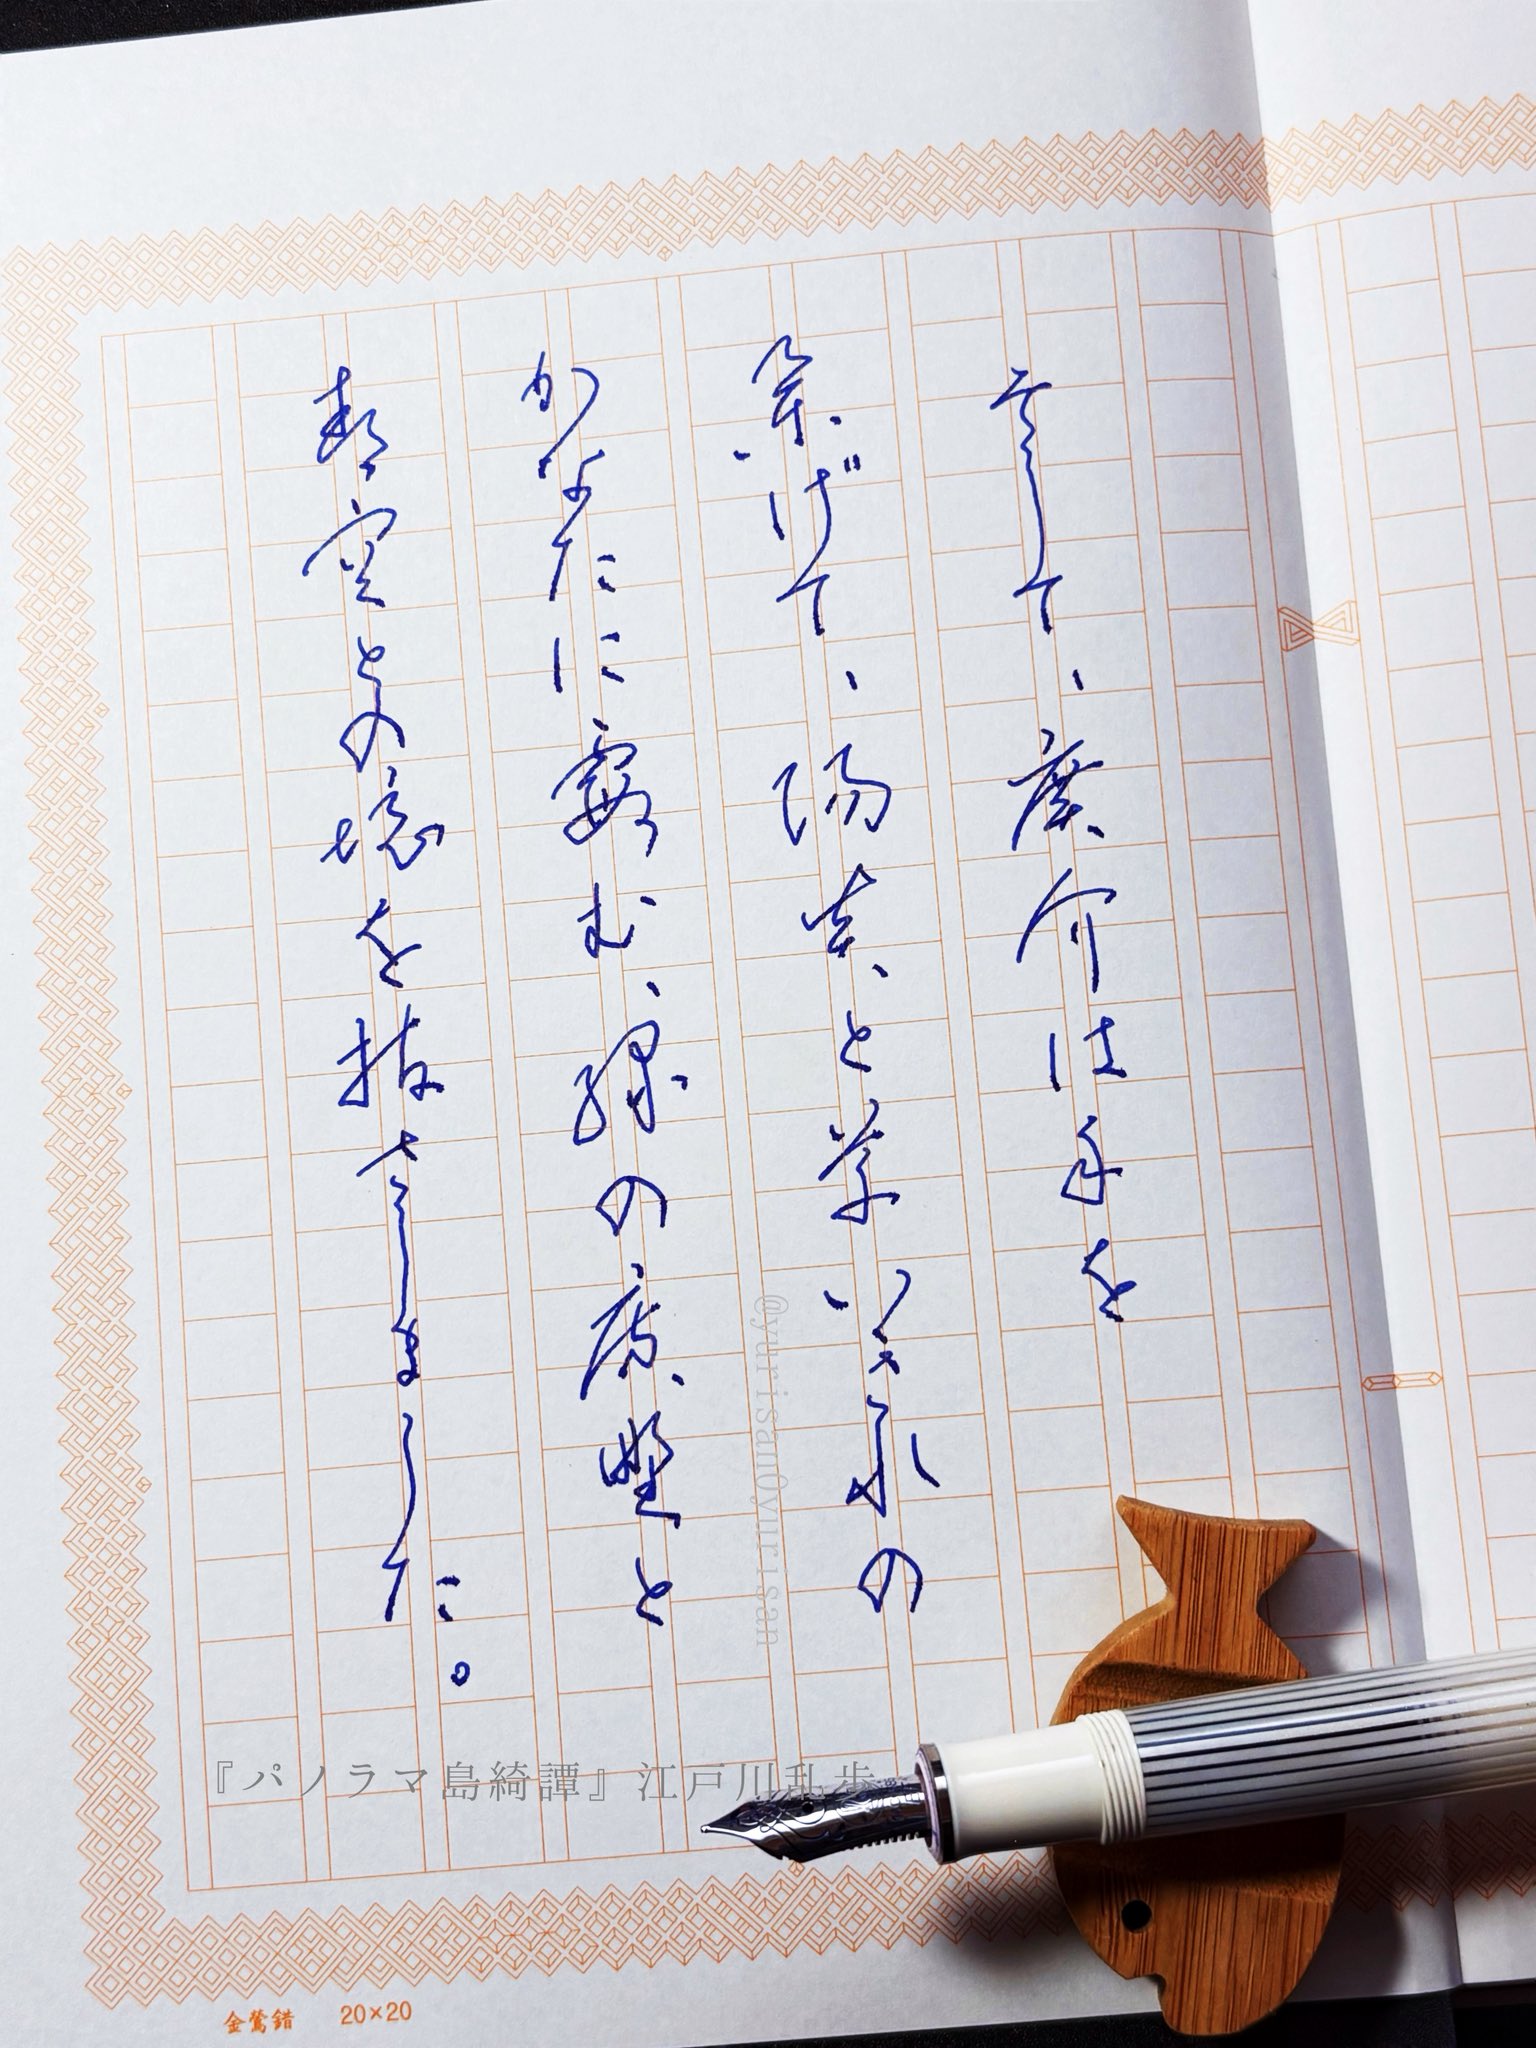 そして、廣介は手を
挙げて、陽炎と草いきれの
かなたに霞む、緑の廣野と
青空との境を指さしました。
@yurisan0yurisan
『パノラマ島綺譚』江戸川乱歩
金鶯錯 20×20